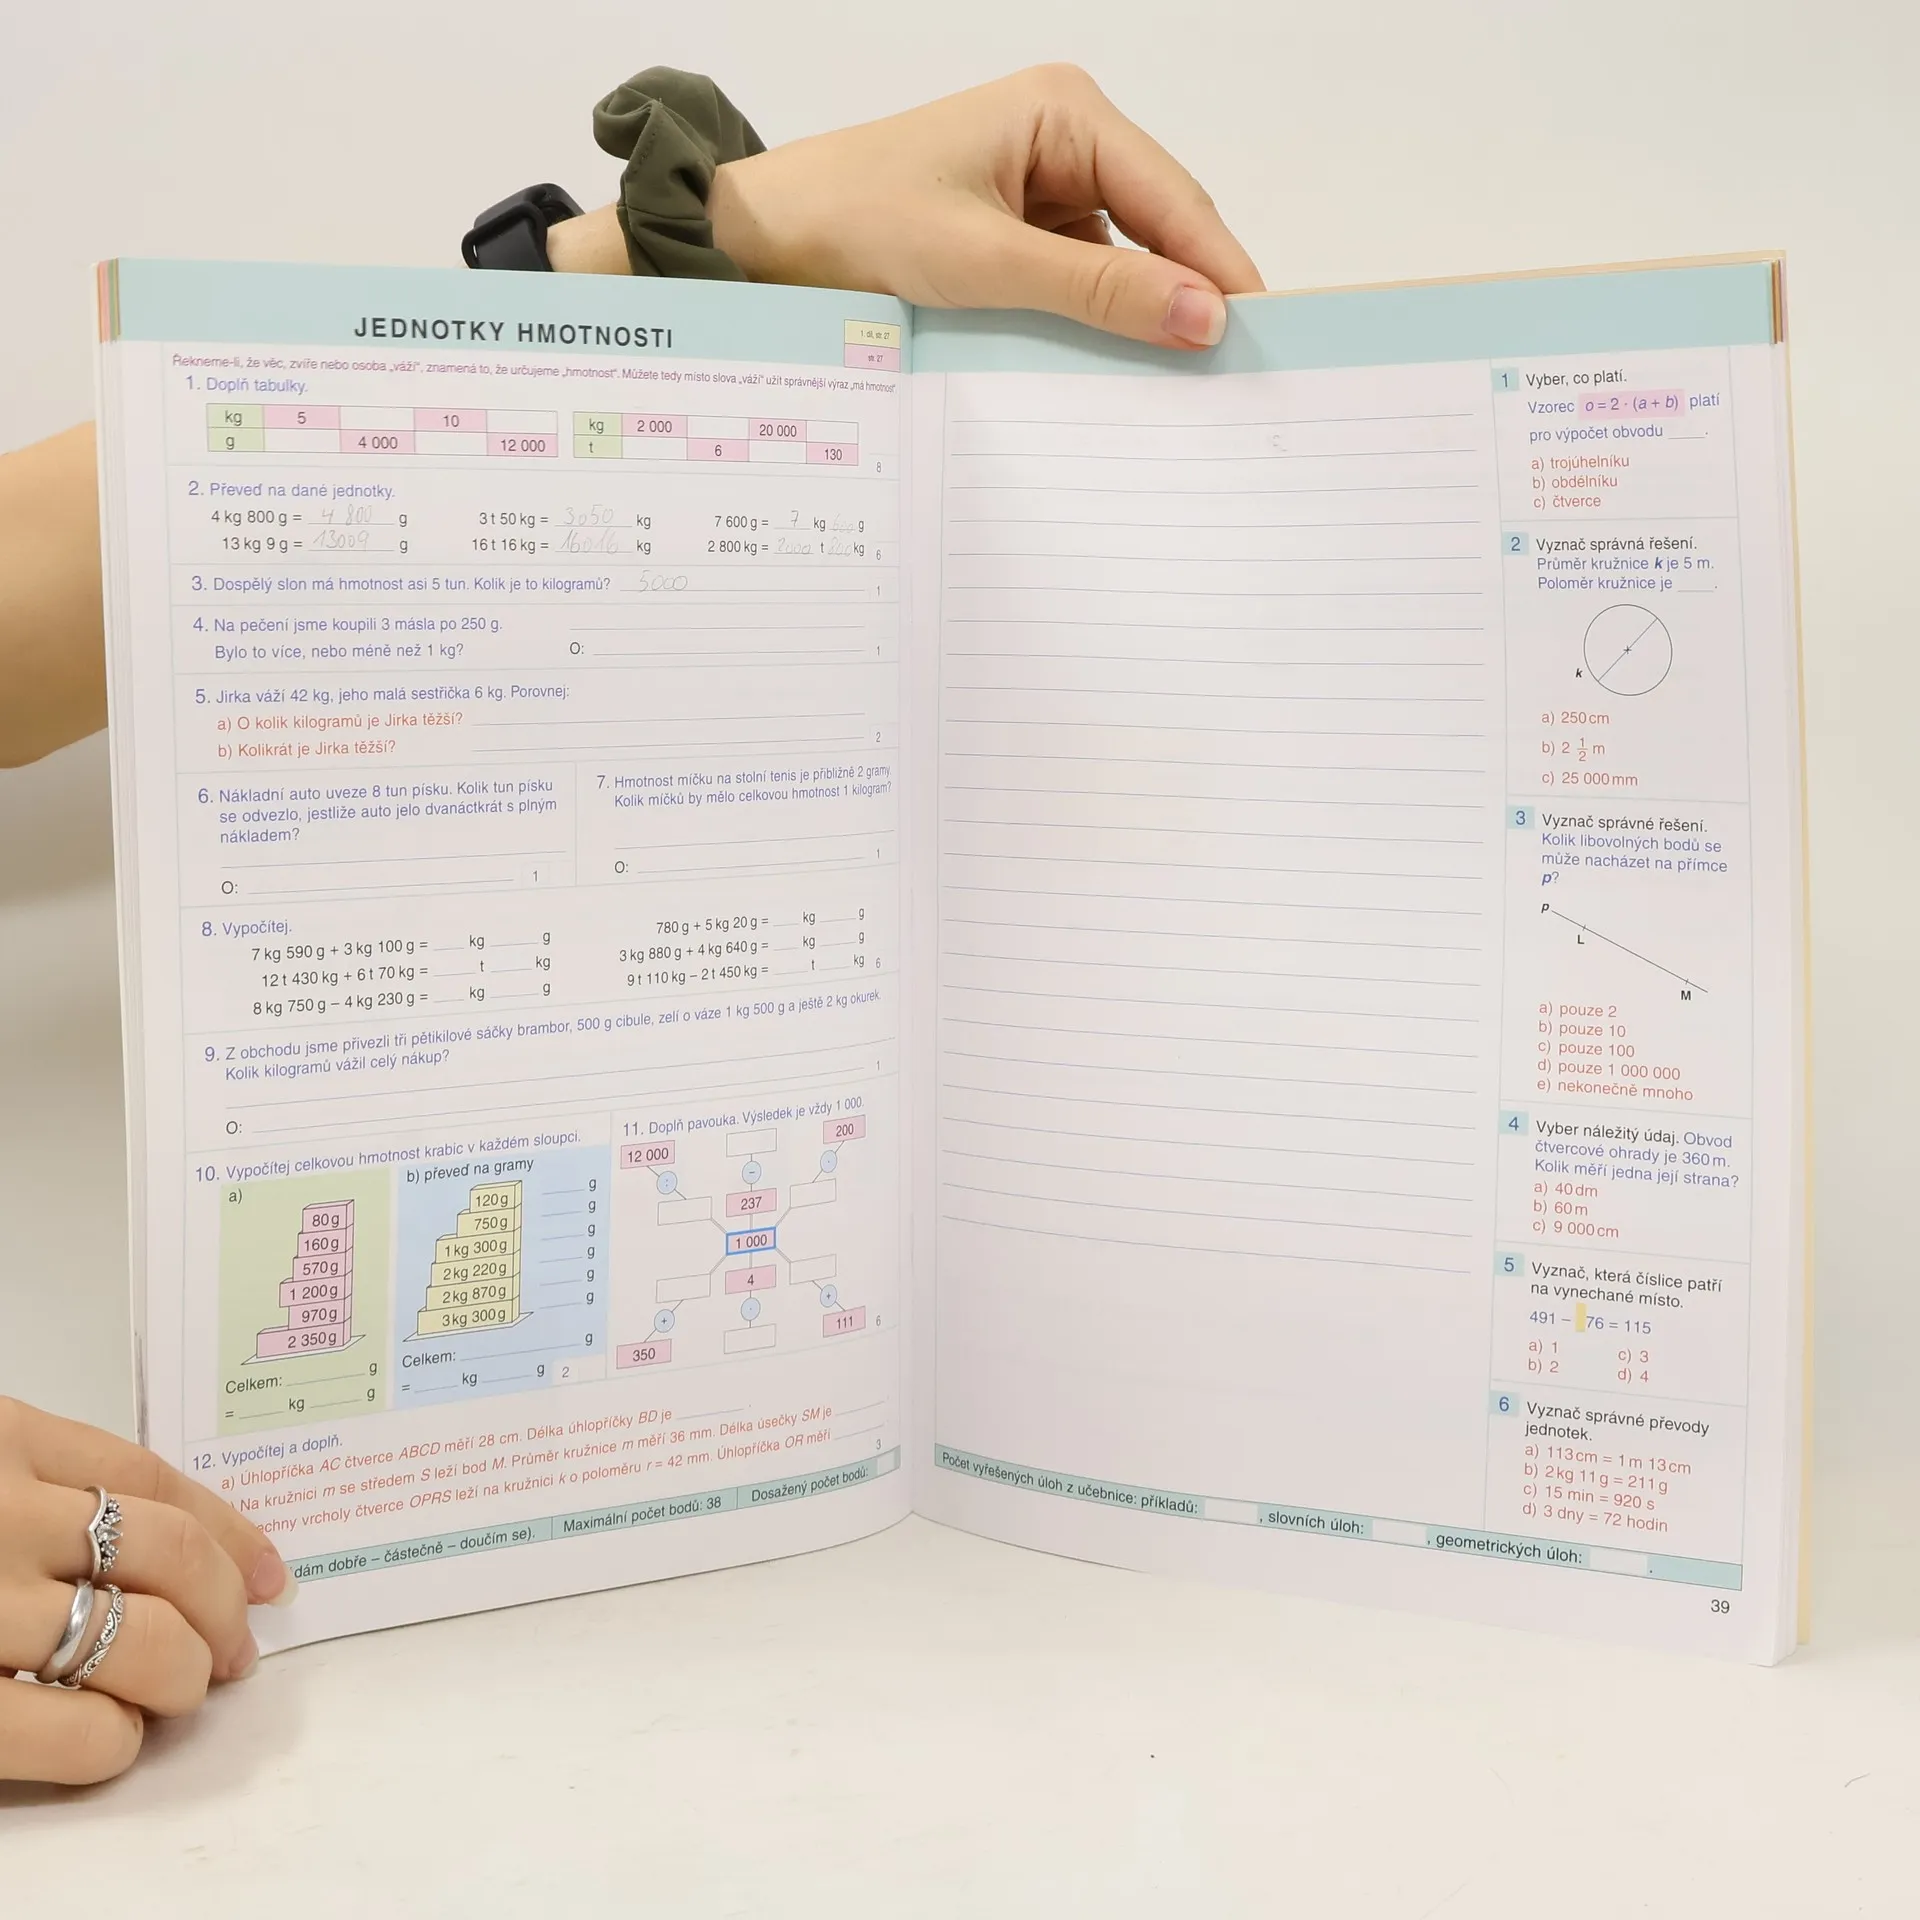 JEDNOTKY HMOTNOSTI
1. díl, str. 27
str. 27
Řekneme-li, že věc, zvíře nebo osoba „váží“, znamená to, že určujeme „hmotnost“. Můžete tedy místo slova „váží“ užít správnější výraz „má hmotnost“
1. Doplň tabulky.
kg 5 10
g 4 000 12 000
kg 2 000 20 000
t 6 130
8
2. Převeď na dané jednotky.
4 kg 800 g = 4 800 g 3 t 50 kg = 3050 kg 7 600 g = 7 kg 600 g
13 kg 9 g = 13009 g 16 t 16 kg = 16016 kg 2 800 kg = 2000 t 800 kg 6
3. Dospělý slon má hmotnost asi 5 tun. Kolik je to kilogramů? 5000
1
4. Na pečení jsme koupili 3 másla po 250 g.
Bylo to více, nebo méně než 1 kg? O: 1
5. Jirka váží 42 kg, jeho malá sestřička 6 kg. Porovnej:
a) O kolik kilogramů je Jirka těžší?
b) Kolikrát je Jirka těžší? 2
6. Nákladní auto uveze 8 tun písku. Kolik tun písku
se odvezlo, jestliže auto jelo dvanáctkrát s plným
nákladem?
O: 1
7. Hmotnost míčku na stolní tenis je přibližně 2 gramy.
Kolik míčků by mělo celkovou hmotnost 1 kilogram?
O: 1
8. Vypočítej.
7 kg 590 g + 3 kg 100 g = kg g
12 t 430 kg + 6 t 70 kg = t kg
8 kg 750 g – 4 kg 230 g = kg g
780 g + 5 kg 20 g = kg g
3 kg 880 g + 4 kg 640 g = kg g
9 t 110 kg – 2 t 450 kg = t kg 6
9. Z obchodu jsme přivezli tři pětikilové sáčky brambor, 500 g cibule, zelí o váze 1 kg 500 g a ještě 2 kg okurek.
Kolik kilogramů vážil celý nákup?
1
O:
10. Vypočítej celkovou hmotnost krabic v každém sloupci.
a)
80 g
160 g
570 g
1 200 g
970 g
2 350 g
Celkem: g
= kg g
b) převeď na gramy
120 g g
750 g g
1 kg 300 g g
2 kg 220 g g
2 kg 870 g g
3 kg 300 g g
Celkem: g
= kg g 2
11. Doplň pavouka. Výsledek je vždy 1 000.
12 000 200
: – ·
237
1 000
4
+ · +
350 111 6
12. Vypočítej a doplň.
a) Úhlopříčka AC čtverce ABCD měří 28 cm. Délka úhlopříčky BD je .
) Na kružnici m se středem S leží bod M. Průměr kružnice m měří 36 mm. Délka úsečky SM je .
echny vrcholy čtverce OPRS leží na kružnici k o poloměru r = 42 mm. Úhlopříčka OR měří
3
dám dobře – částečně – doučím se). Maximální počet bodů: 38 Dosažený počet bodů:
1 Vyber, co platí.
Vzorec o = 2 · (a + b) platí
pro výpočet obvodu .
a) trojúhelníku
b) obdélníku
c) čtverce
2 Vyznač správná řešení.
Průměr kružnice k je 5 m.
Poloměr kružnice je .
k
a) 250 cm
b) 2 1/2 m
c) 25 000 mm
3 Vyznač správné řešení.
Kolik libovolných bodů se
může nacházet na přímce
p?
p
L
M
a) pouze 2
b) pouze 10
c) pouze 100
d) pouze 1 000 000
e) nekonečně mnoho
4 Vyber náležitý údaj. Obvod
čtvercové ohrady je 360 m.
Kolik měří jedna její strana?
a) 40 dm
b) 60 m
c) 9 000 cm
5 Vyznač, která číslice patří
na vynechané místo.
491 – 76 = 115
a) 1 c) 3
b) 2 d) 4
6 Vyznač správné převody
jednotek.
a) 113 cm = 1 m 13 cm
b) 2 kg 11 g = 211 g
c) 15 min = 920 s
d) 3 dny = 72 hodin
Počet vyřešených úloh z učebnice: příkladů: , slovních úloh: , geometrických úloh: .
39